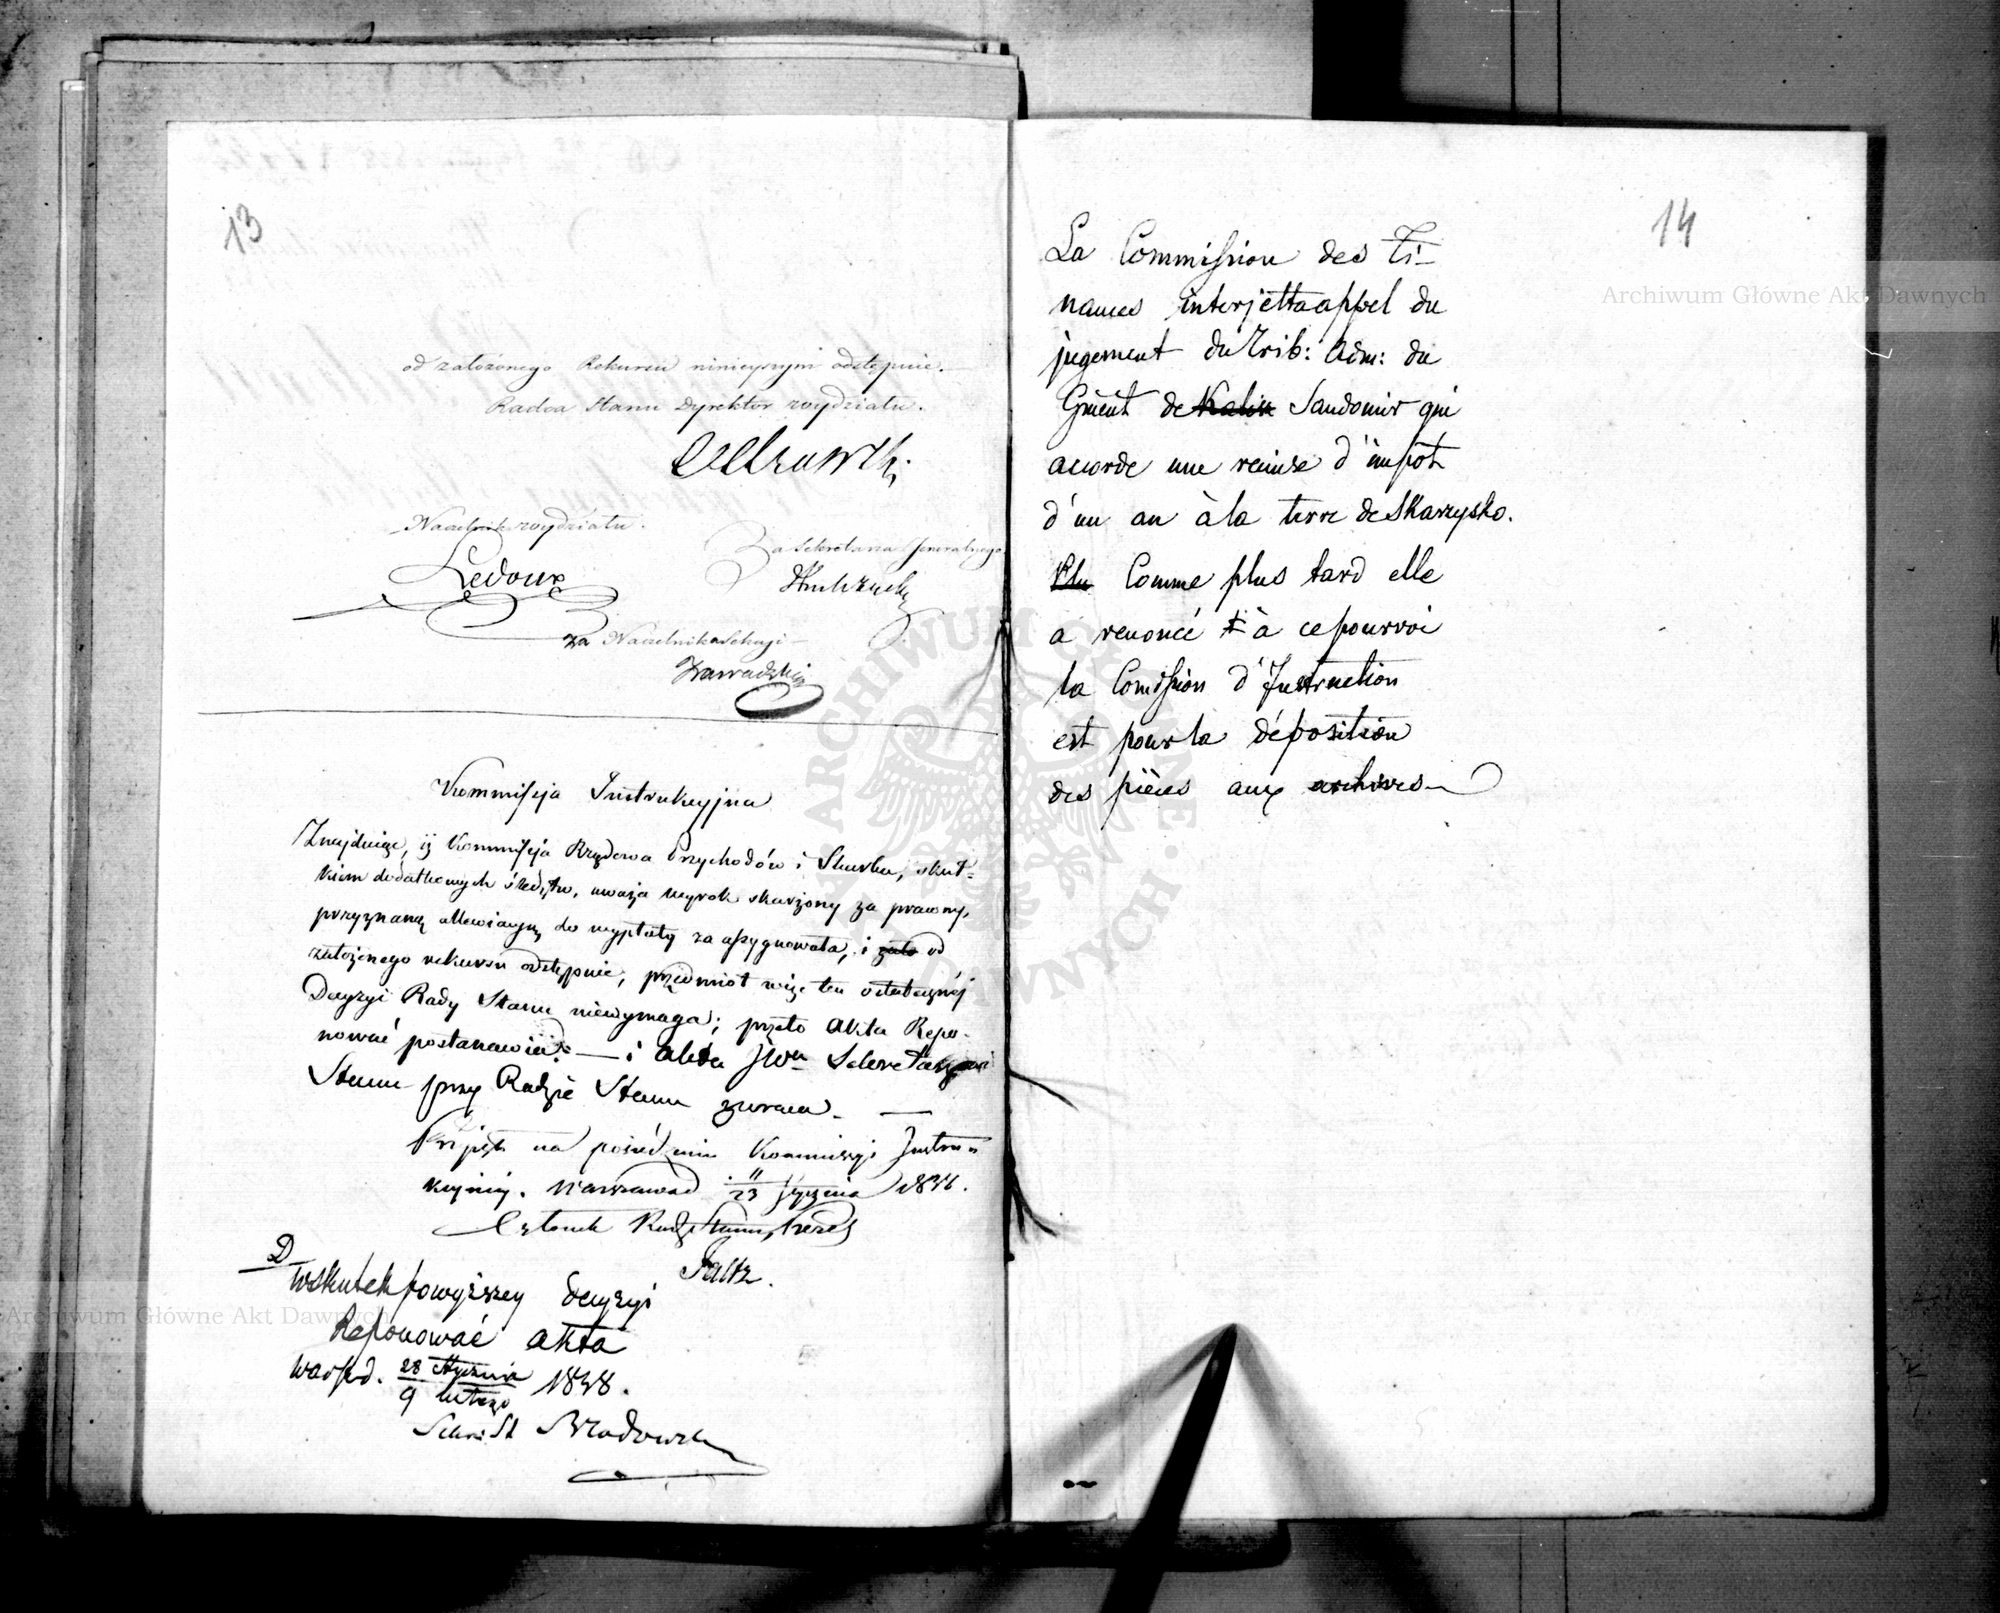 13
od założonego Rekursu ninieyszym odstępuie.
Radca Stanu Dyrektor wydziału.
Naczelnik wydziału.
Ledoux
Za Sekretarza Jeneralnego
za Naczelnika Sekcyi
Zawadzki
Kommissja Instrukcyjna
Znajduiąc, iż Kommissja Rządowa Przychodów i Skarbu, skut-
kiem dodatkowych śledztw, uważa wyrok skarżony za prawny,
przyznaną allewiacyą do wypłaty zaassygnowała, i zato od
założonego rekursu odstępuie, przedmiot więc ten ostatecznéj
Decyzyi Rady Stanu niewymaga; przeto Akta Repo-
nować postanawia. — i akta JWu Sekretarzowi
Stanu przy Radzie Stanu zwraca. —
Przyjęto na posiedzeniu Kommissyi Instru-
kcyjnéj. Warszawa d 11/23 Stycznia 1838.
Członek Rady Stanu, Prezes
Faltz.
D
Wskutek powyższey Decyzyi
Reponować akta
Warsz. d. 28 Stycznia / 9 lutego 1838.
Sekr: St Brzodowski
14
La Commission des Fi-
nances interjetta appel du
jugement du Trib: Adm: du
Gment de Kalisz Sandomir qui
accorde une remise d'impôt
d'un an à la terre de Skarzysko.
Plu Comme plus tard elle
a renoncé à ce pourvoi
la Comission d'Instruction
est pour la déposition
des pièces aux archives
Archiwum Główne Akt Dawnych
Archiwum Główne Akt Dawnych
ARCHIWUM GŁÓWNE AKT DAWNYCH